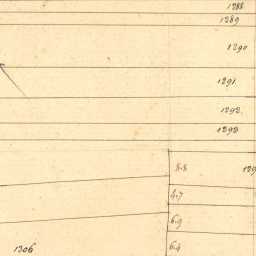 1288
1289
1290
1291.
1292.
1293
8.8
129
4.7
6.9
1306
6.4